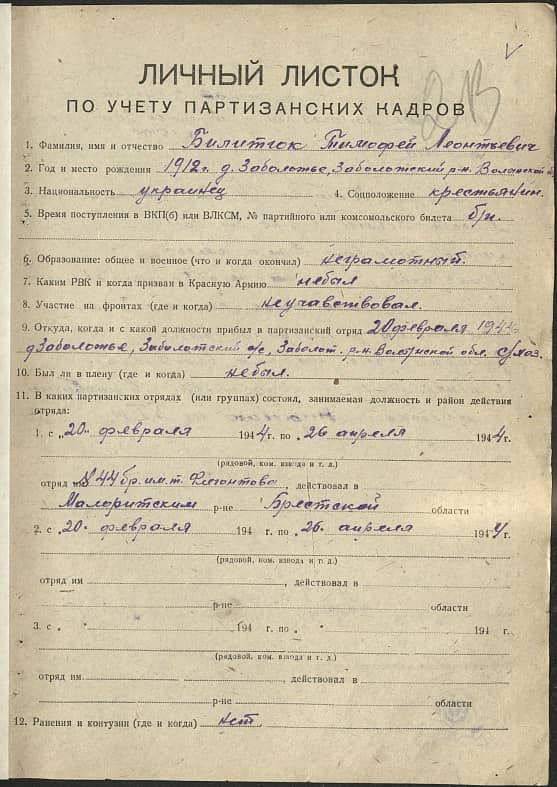 ЛИЧНЫЙ ЛИСТОК
ПО УЧЕТУ ПАРТИЗАНСКИХ КАДРОВ
1. Фамилия, имя и отчество Билитюк Тимофей Леонтьевич
2. Год и место рождения 1912г. д. Заболотье, Заболотский р-н. Волынской
3. Национальность украинец 4. Соцположение крестьянин.
5. Время поступления в ВКП(б) или ВЛКСМ, № партийного или комсомольского билета б/п.
6. Образование: общее и военное (что и когда окончил) неграмотный.
7. Каким РВК и когда призван в Красную Армию небыл
8. Участие на фронтах (где и когда) неучавствовал.
9. Откуда, когда и с какой должности прибыл в партизанский отряд 20 февраля 1944
д Заболотье, Заболотский с/с, Заболот. р-н. Волынской обл.
10. Был ли в плену (где и когда) небыл.
11. В каких партизанских отрядах (или группах) состоял, занимаемая должность и район действия
отряда:
1. с „20" февраля 1944 г. по „26 апреля 1944 г.
(рядовой, ком. взвода и т. д.)
отряд 44 бр. им. т. действовал в
Малоритским р-не Брестской области
2. с „20" февраля 194 г. по „26 апреля 1944 г.
(рядовой, ком. взвода и т. д.)
отряд им , действовал в
р-не области
3. с „ 194 г. по „ 194 г.
(рядовой, ком. взвода и т. д.)
отряд им. , действовал в
р-не области
12. Ранения и контузии (где и когда) нет